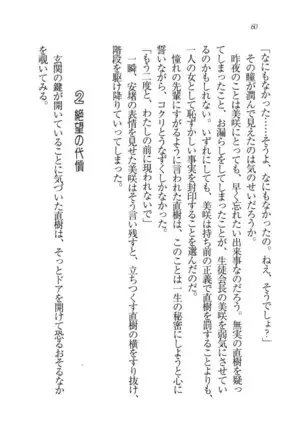 60
「なにもなかった……そうよ、なにもなかったの。ねえ、そうでしょ？」
その瞳が潤んで見えたのは気のせいだろうか。
昨夜のことは美咲にとっても、早く忘れたい出来事なのだろう。無実の直樹を疑っ
てしまったこと、お漏らしをしてしまったことが、生徒会長の美咲を弱気にさせてい
るのかもしれない。いずれにしても美咲は、持ち前の正義で直樹を罰することよりも、
一人の女として恥ずかしい事実を封印することを選んだのだ。
憧れの先輩にすがるように言われた直樹は、このことは一生の秘密にしようと心に
誓いながら、コクリとうなずくしかなかった。
「もう二度と、わたしの前に現われないで」
一瞬、安堵の表情を見せた美咲はそう言い残すと、立ちつくす直樹の横をすり抜け、
階段を駆け降りていってしまった。
② 絶望の代償
玄関の鍵が開いていることに気づいた直樹は、そっとドアを開けておそるおそるなか
を覗いてみる。